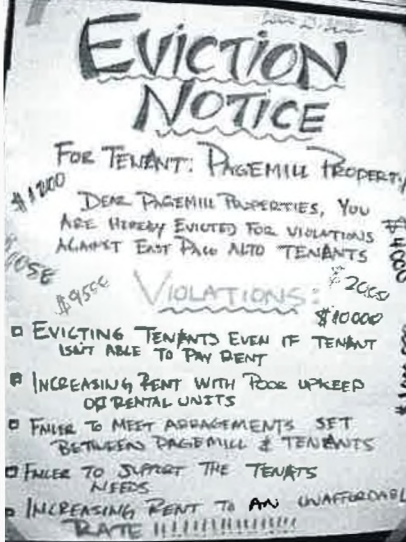 EVICTION
NOTICE
FOR TENANT: PAGEMILL PROPERTY
$1200
DEAR PAGEMILL PROPERTIES, YOU
ARE HEREBY EVICTED FOR VIOLATIONS
AGAINST EAST PALO ALTO TENANTS
VIOLATIONS:
$10000
□ EVICTING TENANTS EVEN IF TENANT
ISN'T ABLE TO PAY RENT
□ INCREASING RENT WITH POOR UPKEEP
OF RENTAL UNITS
□ FAILER TO MEET ARRAGEMENTS SET
BETWEEN PAGEMILL & TENANTS
□ FAILER TO SUPPORT THE TENATS
NEEDS
□ INCREASING RENT TO AN UNAFFORDABL
RATE !!!!!!!!!!!!!!